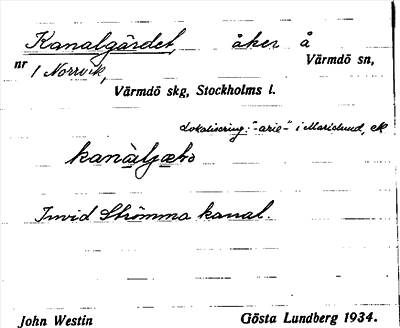 Kanalgärdet, åker å
nr 1 Norrvik, Värmdö sn,
Värmdö skg, Stockholms l.
Lokalisering: "-arie-" i Marielund, ek
Invid Strömma kanal.
John Westin Gösta Lundberg 1934.